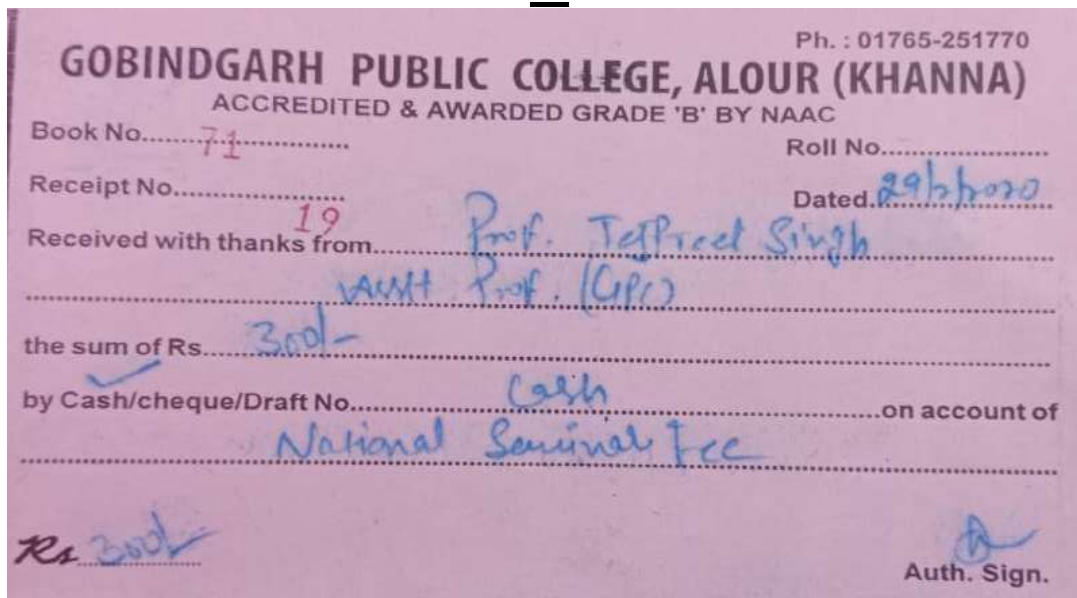 Ph. : 01765-251770
GOBINDGARH PUBLIC COLLEGE, ALOUR (KHANNA)
ACCREDITED & AWARDED GRADE 'B' BY NAAC
Book No.......71.................... Roll No......................
Receipt No.........19............... Dated.29/2/2020
Received with thanks from...... Prof. Tejpreet Singh
Asstt Prof. (GPC)
the sum of Rs......300/-
by Cash/cheque/Draft No.................. Cash ..................on account of
National Seminar Fee
Rs 300/-
Auth. Sign.